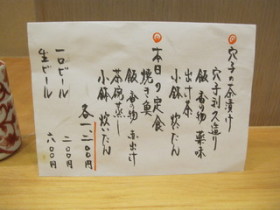 穴子の茶漬け
穴子利久造り
飯 香の物 薬味
出し茶
小鉢 炊いたん
本日の定食
焼き魚
飯 香の物 赤出汁
茶碗蒸し
小鉢 炊いたん
各一二〇〇円
一口ビール 二〇〇円
生ビール 六〇〇円